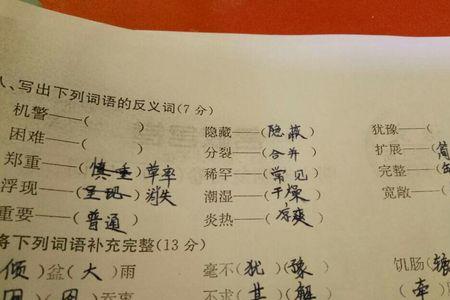 、写出下列词语的反义词(7 分)
机警——( ) 隐藏——(隐藏) 犹豫——(
困难——( ) 分裂——(合并) 扩展——(
郑重——(慎重)草率 稀罕——(常见) 完整——(
浮现——(呈现)消失 潮湿——(干燥) 宽敞——(
重要——(普通) 炎热——(凉爽)
将下列词语补充完整(13 分)
倾)盆(大)雨 毫不(犹)(豫) 饥肠(辘